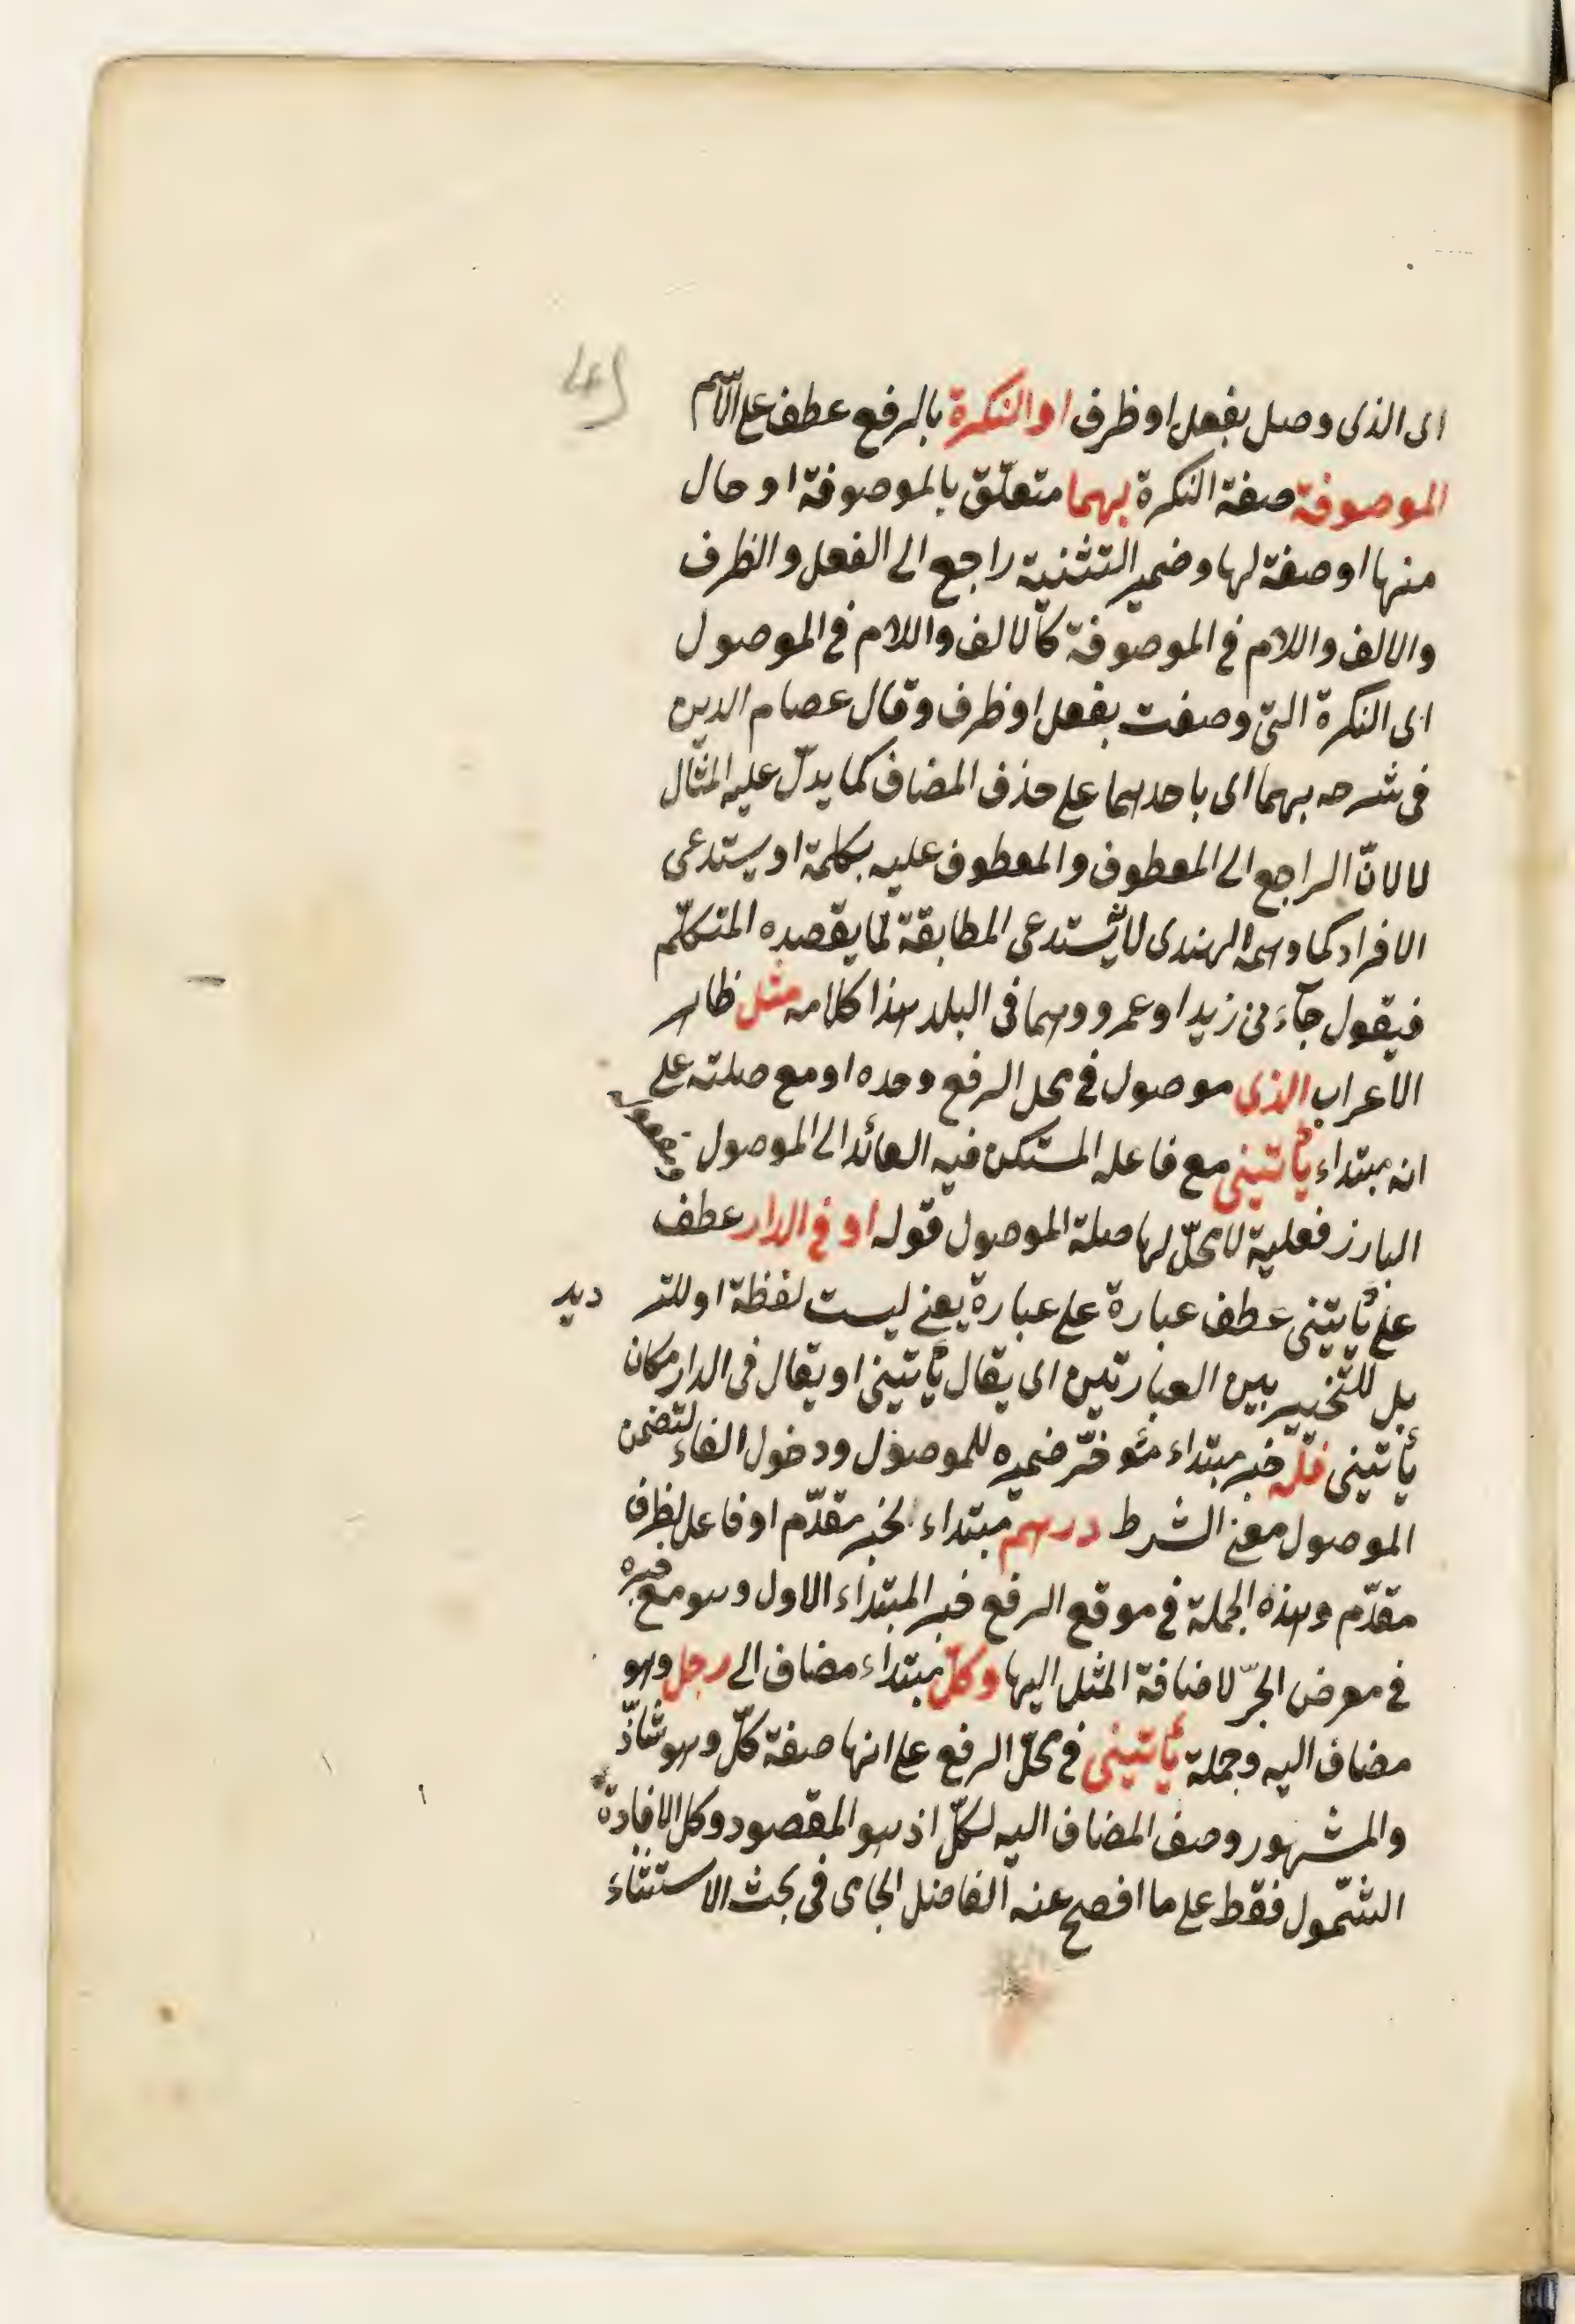 اى الذى وصل بفعل او ظرف او النكرة بالرفع عطف على الاسم
الموصوفة صفة النكرة بهما متعلّق بالموصوفة او حال
منها او صفة لها وضمير التثنية راجع الى الفعل والظرف
والالف واللام فى الموصوفة كالالف واللام فى الموصول
اى النكرة التى وصفت بفعل او ظرف وقال عصام الدين
فى شرحه بهما اى باحدهما على حذف المضاف كما يدلّ عليه المثال
لا لانّ الراجع الى المعطوف والمعطوف عليه بكلمة او يستدعى
الافراد كما وهمه الهندى لانه يستدعى المطابقة لما يقصده المتكلّم
فيقول جآءنى زيد او عمرو وهما فى البلد هذا كلامه مثل ظاهر
الاعراب الذى موصول فى محل الرفع وحده او مع صلته على
انه مبتداء يأتينى مع فاعله المستكن فيه العائد الى الموصول ومفعوله
البارز فعلية لا محلّ لها صلة الموصول قوله او فى الدار عطف
على يأتينى عطف عبارة على عبارة يعنى ليست لفظة او للترديد
بل للتخيير بين العبارتين اى يقال يأتينى او يقال فى الدار مكان
يأتينى فله خبر مبتداء مؤخّر ضميره للموصول ودخول الفاء لتضمن
الموصول معنى الشرط درهم مبتداء لخبر مقدّم او فاعل لظرف
مقدّم وهذه الجملة فى موقع الرفع خبر المبتداء الاول وهو مع خبره
فى معرض الجرّ لاضافة المثل اليها وكلّ مبتداء مضاف الى رجل وهو
مضاف اليه وجملة يأتينى فى محلّ الرفع على انها صفة كلّ وهو شاذّ
والمشهور وصف المضاف اليه لكلّ اذ هو المقصود وكل لافادة
الشمول فقط على ما افصح عنه الفاضل الجامى فى بحث الاستثناء